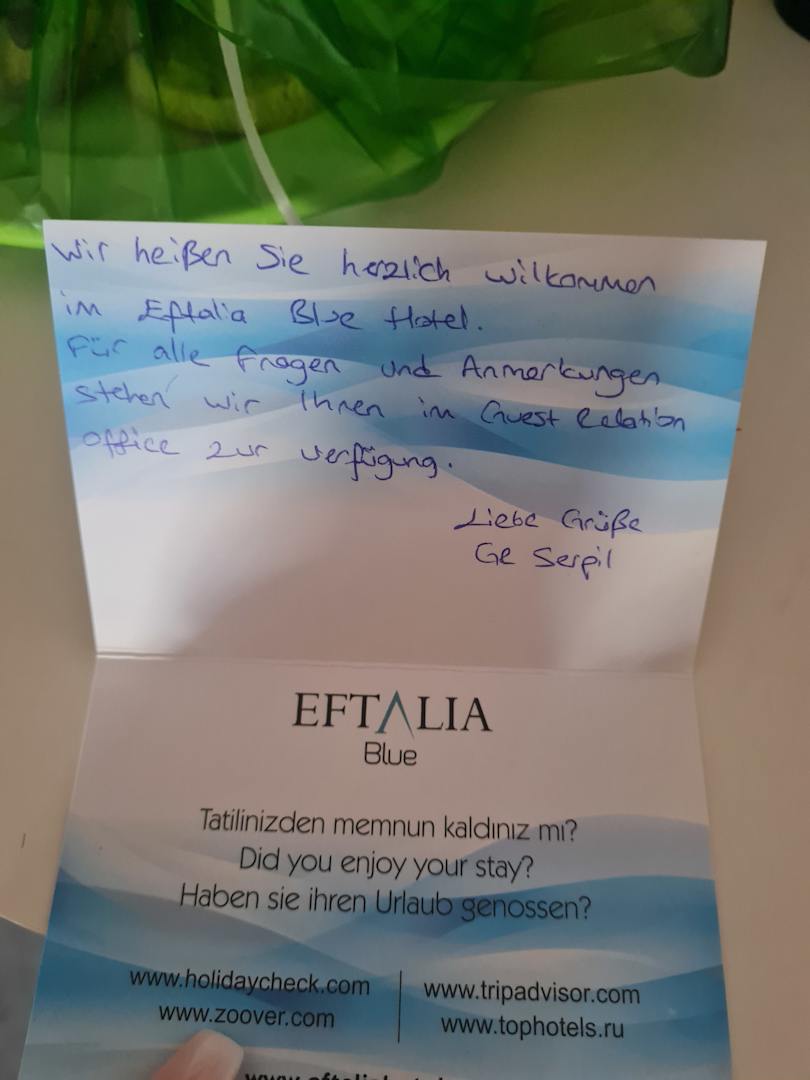 Wir heißen Sie herzlich wilkommen
im Eftalia Blue Hotel.
Für alle Fragen und Anmerkungen
stehen wir Ihnen im Guest Relation
office zur verfügung.
Liebe Grüße
GR Serpil
EFTALIA
Blue
Tatilinizden memnun kaldınız mı?
Did you enjoy your stay?
Haben sie ihren Urlaub genossen?
www.holidaycheck.com
www.zoover.com
www.tripadvisor.com
www.tophotels.ru